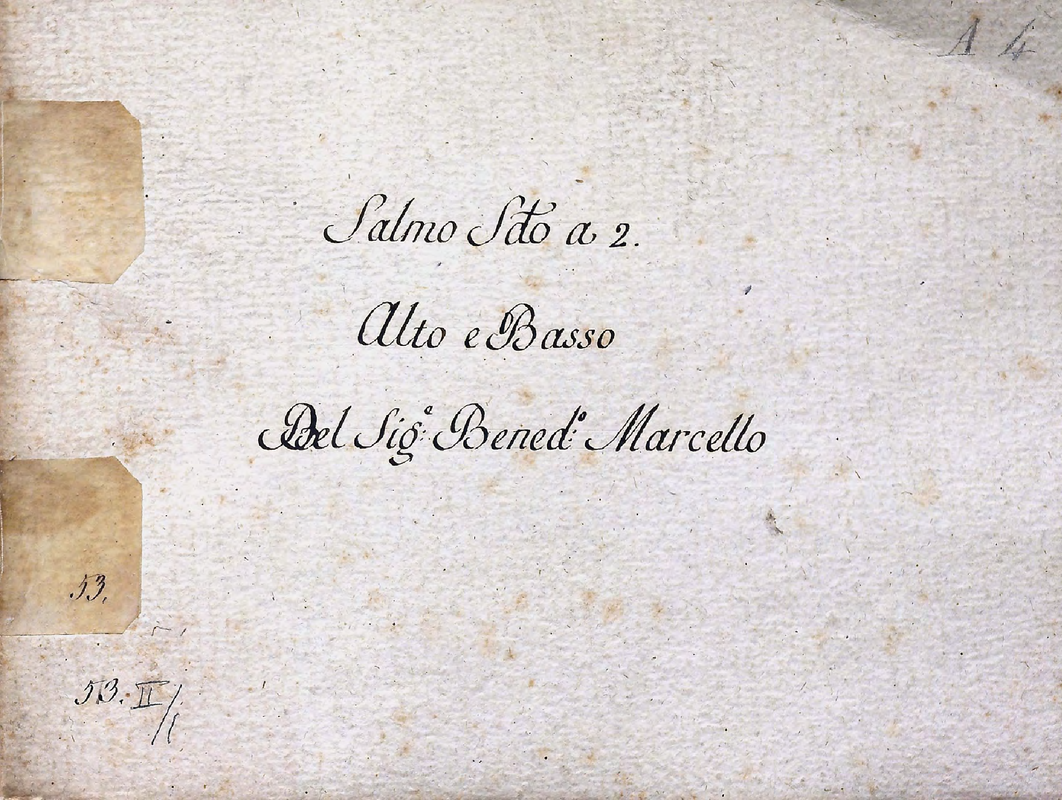 A 4
Salmo Sdto a 2.
Alto e Basso
Del Sig.e Bened.o Marcello
53.
53. II/1